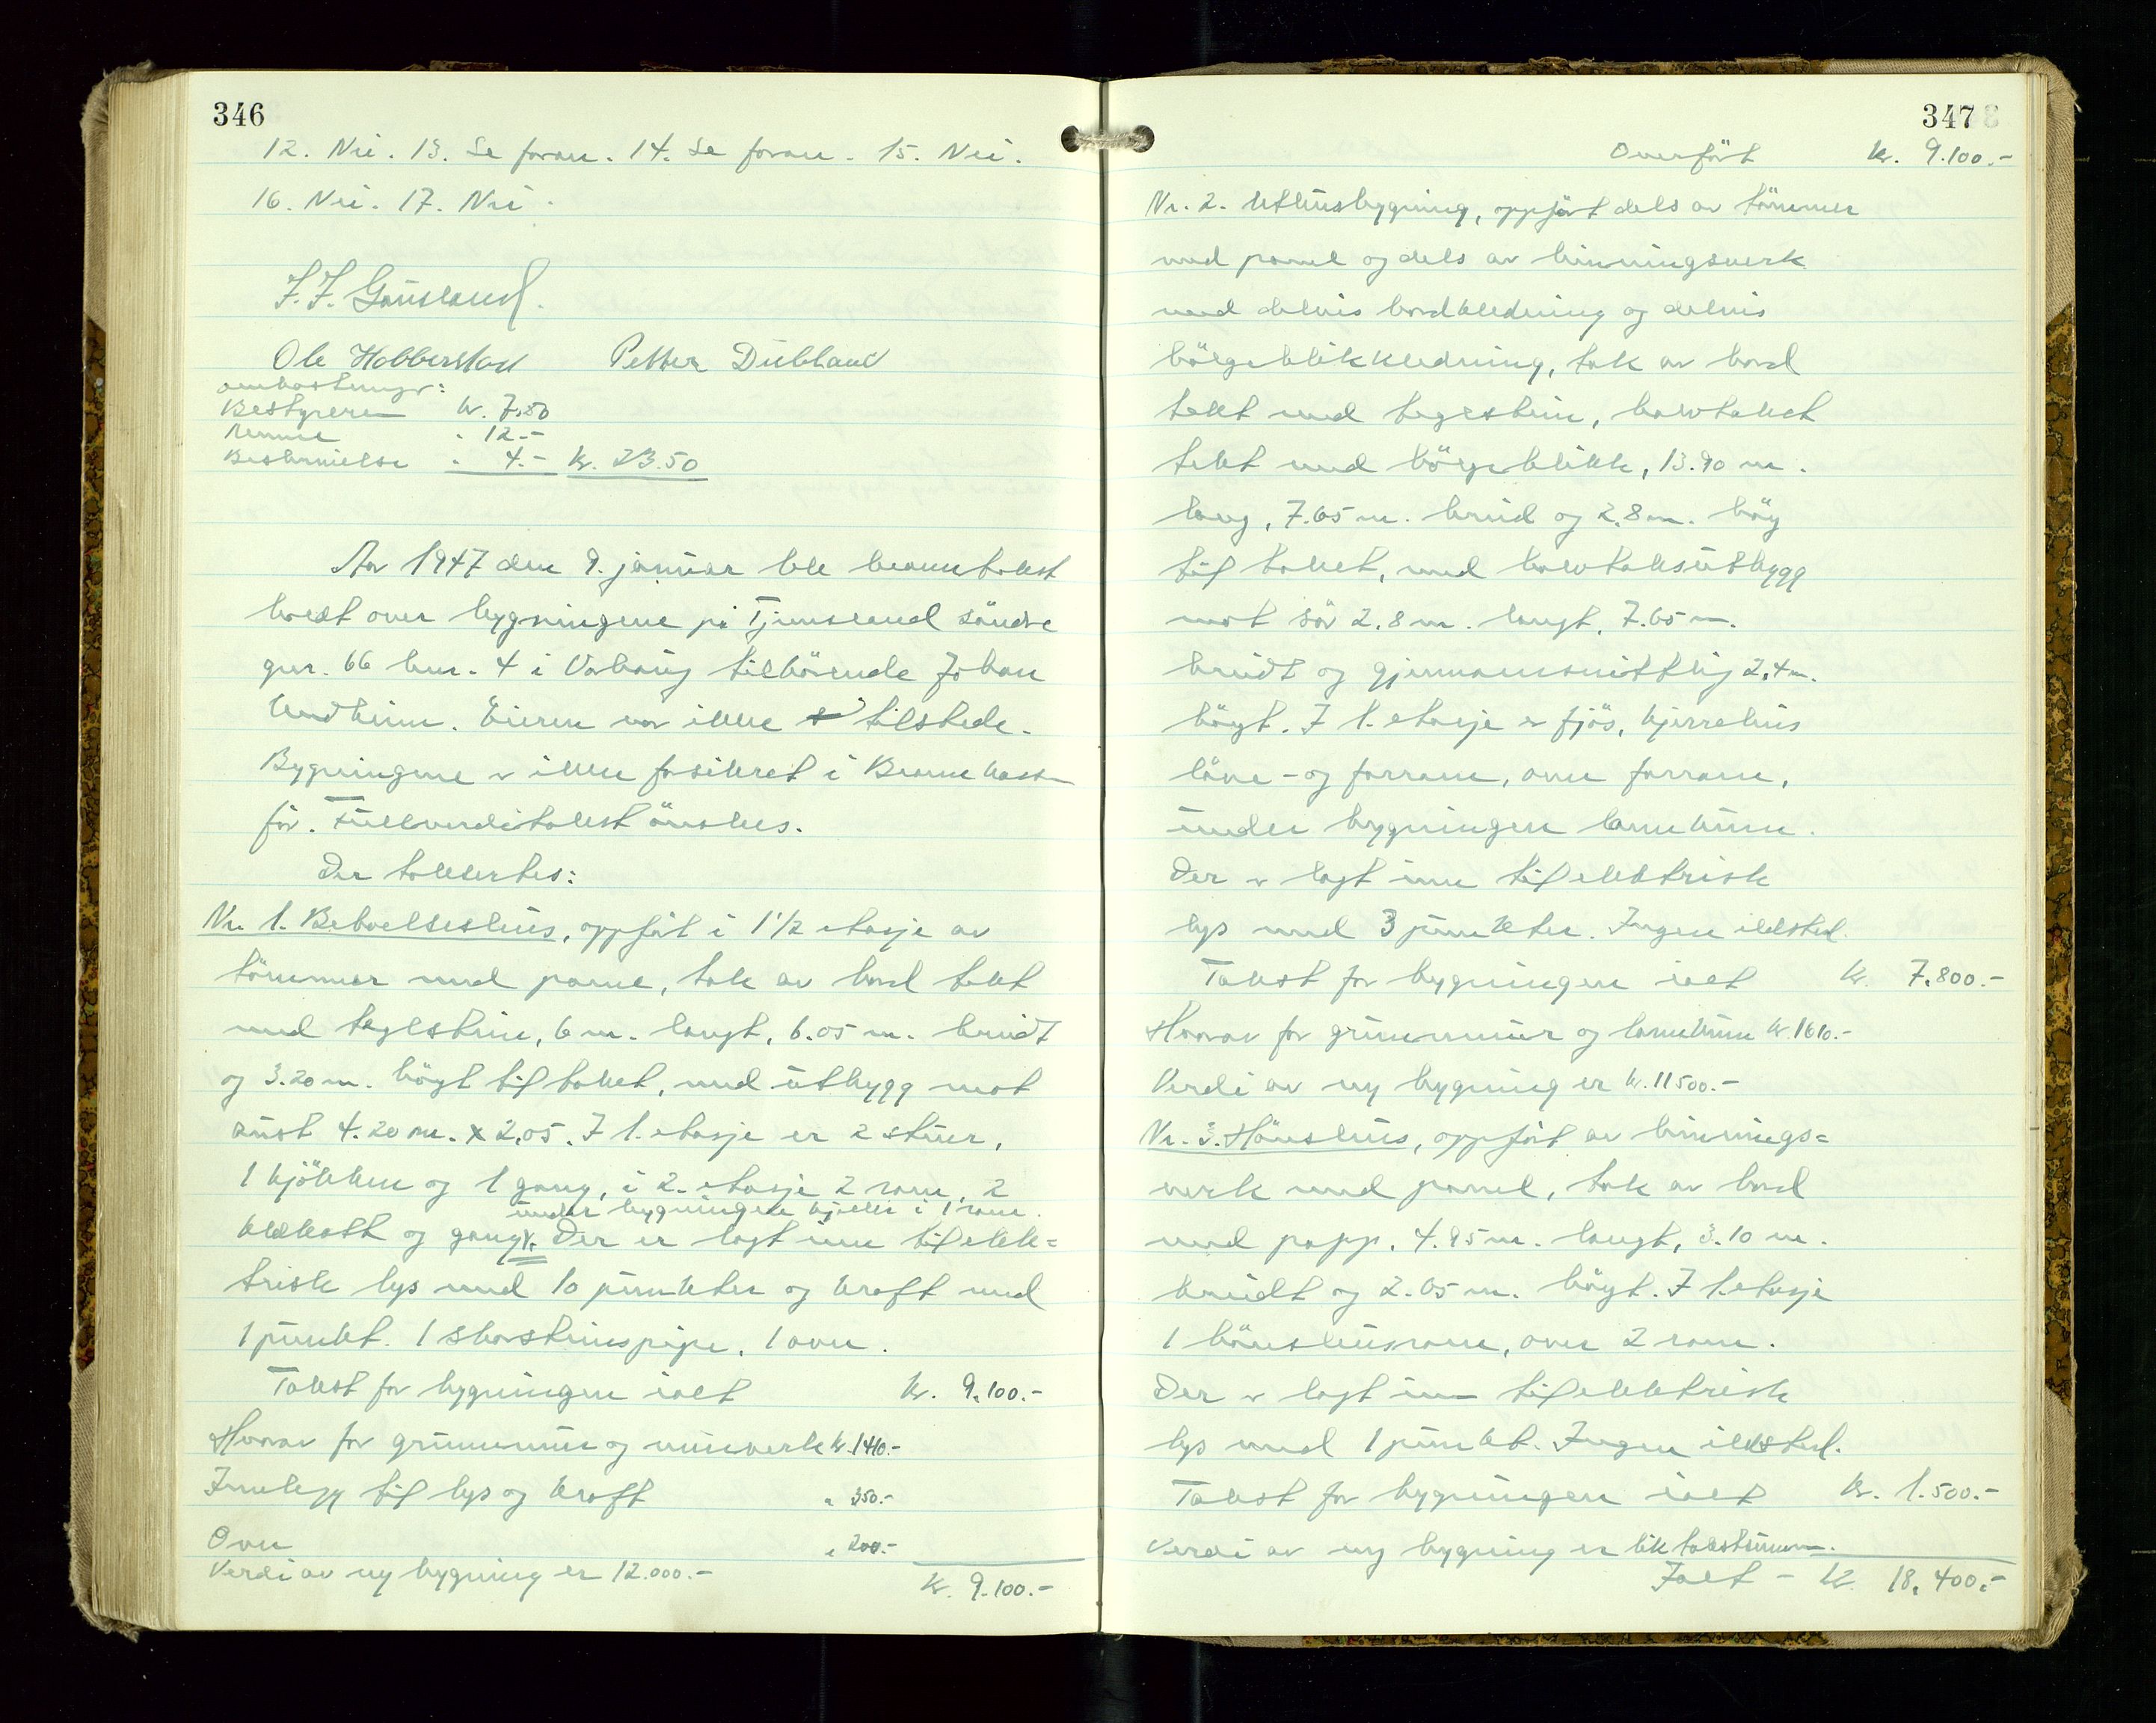 346
12. Nei. 13. Se foran. 14. Se foran. 15. Nei.
16. Nei. 17. Nei.
J. J. Gausland.
Ole Hobberstad Petter Dubland
Omkostninger:
Bestyreren kr. 7.50
Menne " 12.-
Beskrivelse " 4.- Kr. 23.50
Aar 1947 den 9. januar ble branntakst
holdt over bygningene på Tjemsland söndre
gnr. 66 bnr. 4 i Varhaug tilhörende Johan
Undheim. Eieren var ikke tilstede.
Bygningene er ikke forsikret i Brannkassen
för. Fullverditakst önskes.
Der takkertes:
Nr. 1. Beboelseshus, oppfört i 1 1/2 etasje av
tömmer med panel, tak av bord tekt
med taglstein, 6 m. langt, 6.05 m. breidt
og 3.20 m. högt til taket, med utbygg mot
aust 4.20 m. x 2.05. I 1. etasje er 2 stuer,
1 kjökken og 1 gang, i 2. etasje 2 rom, 2
under bygningen kjeller i 1 rom.
klekott og gang. Der er lagt inn til elek=
trisk lys med 10 punkter og kraft med
1 punkt. 1 skorsteinspipe. 1 ovn.
Takst for bygningen ialt kr. 9.100.-
Hvorav for grunnmur og murverk kr. 1410.-
Innlegg til lys og kraft " 350.-
Ovn " 200.-
Verdi av ny bygning er 12.000.-
Kr. 9.100.-
347
Overfört kr. 9.100.-
Nr. 2. Uthusbygning, oppfört dels av tömmer
med panel og dels av binningsverk
med delvis bordkledning og delvis
bölgeblikkledning, tak av bord
tekt med taglstein, halvtaket
tekt med bölgeblikk, 13.90 m.
lang, 7.65 m. breid og 2.8 m. höy
til taket, med halvtaksutbygg
mot sör 2.8 m. langt, 7.65 m.
breidt og gjennomsnittlig 2,4 m.
högt. I 1. etasje er fjös, kjerrehus
löve- og forrom, oven forrom,
under bygningen landkum.
Der er lagt inn til elektrisk
lys med 3 punkter. Ingen ildsted.
Takst for bygningen ialt kr. 7.800.-
Hvorav for grunnmur og landkum kr. 1610.-
Verdi av ny bygning er kr. 11500.-
Nr. 3. Hönsehus, oppfört av binnings=
verk med panel, tak av bord
med papp. 4.95 m. langt, 3.10 m.
breidt og 2.05 m. högt. I 1. etasje
1 hönsehusrom, over 2 rom.
Der er lagt inn til elektrisk
lys med 1 punkt. Ingen ildsted.
Takst for bygningen ialt kr. 1.500.-
Verdi av ny bygning er lik takstsummen.
Ialt - kr. 18.400.-